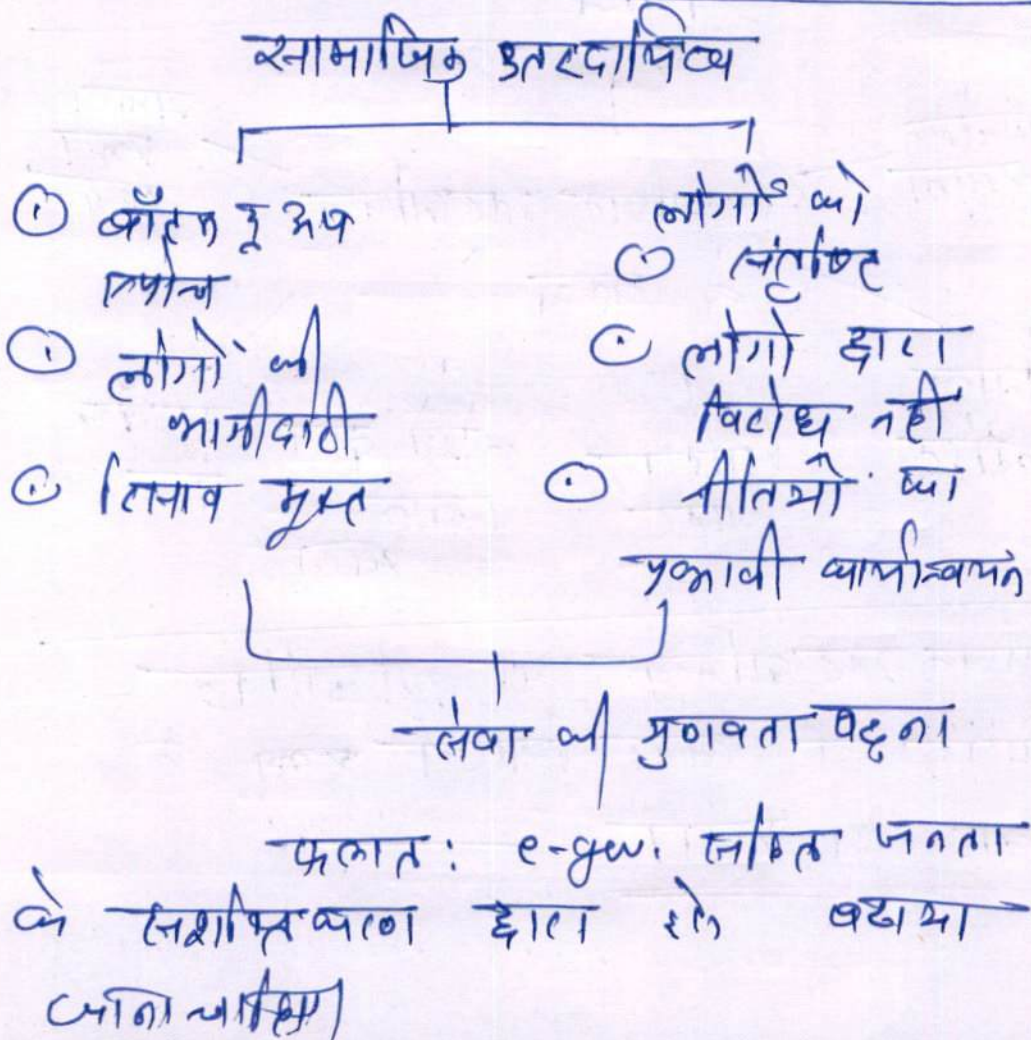 सामाजिक उत्तरदायित्व
बॉटम टू अप
एप्रोच
लोगों की
भागीदारी
तनाव मुक्त
लोगों को
संतुष्टि
लोगो द्वारा
विरोध नही
नीतियो का
प्रभावी कार्यान्वयन
सेवा की गुणवता बढ़ना
फलतः e-gov. सहित जनता
के सशक्तिकरण द्वारा इसे बढाया
जाना चाहिए।